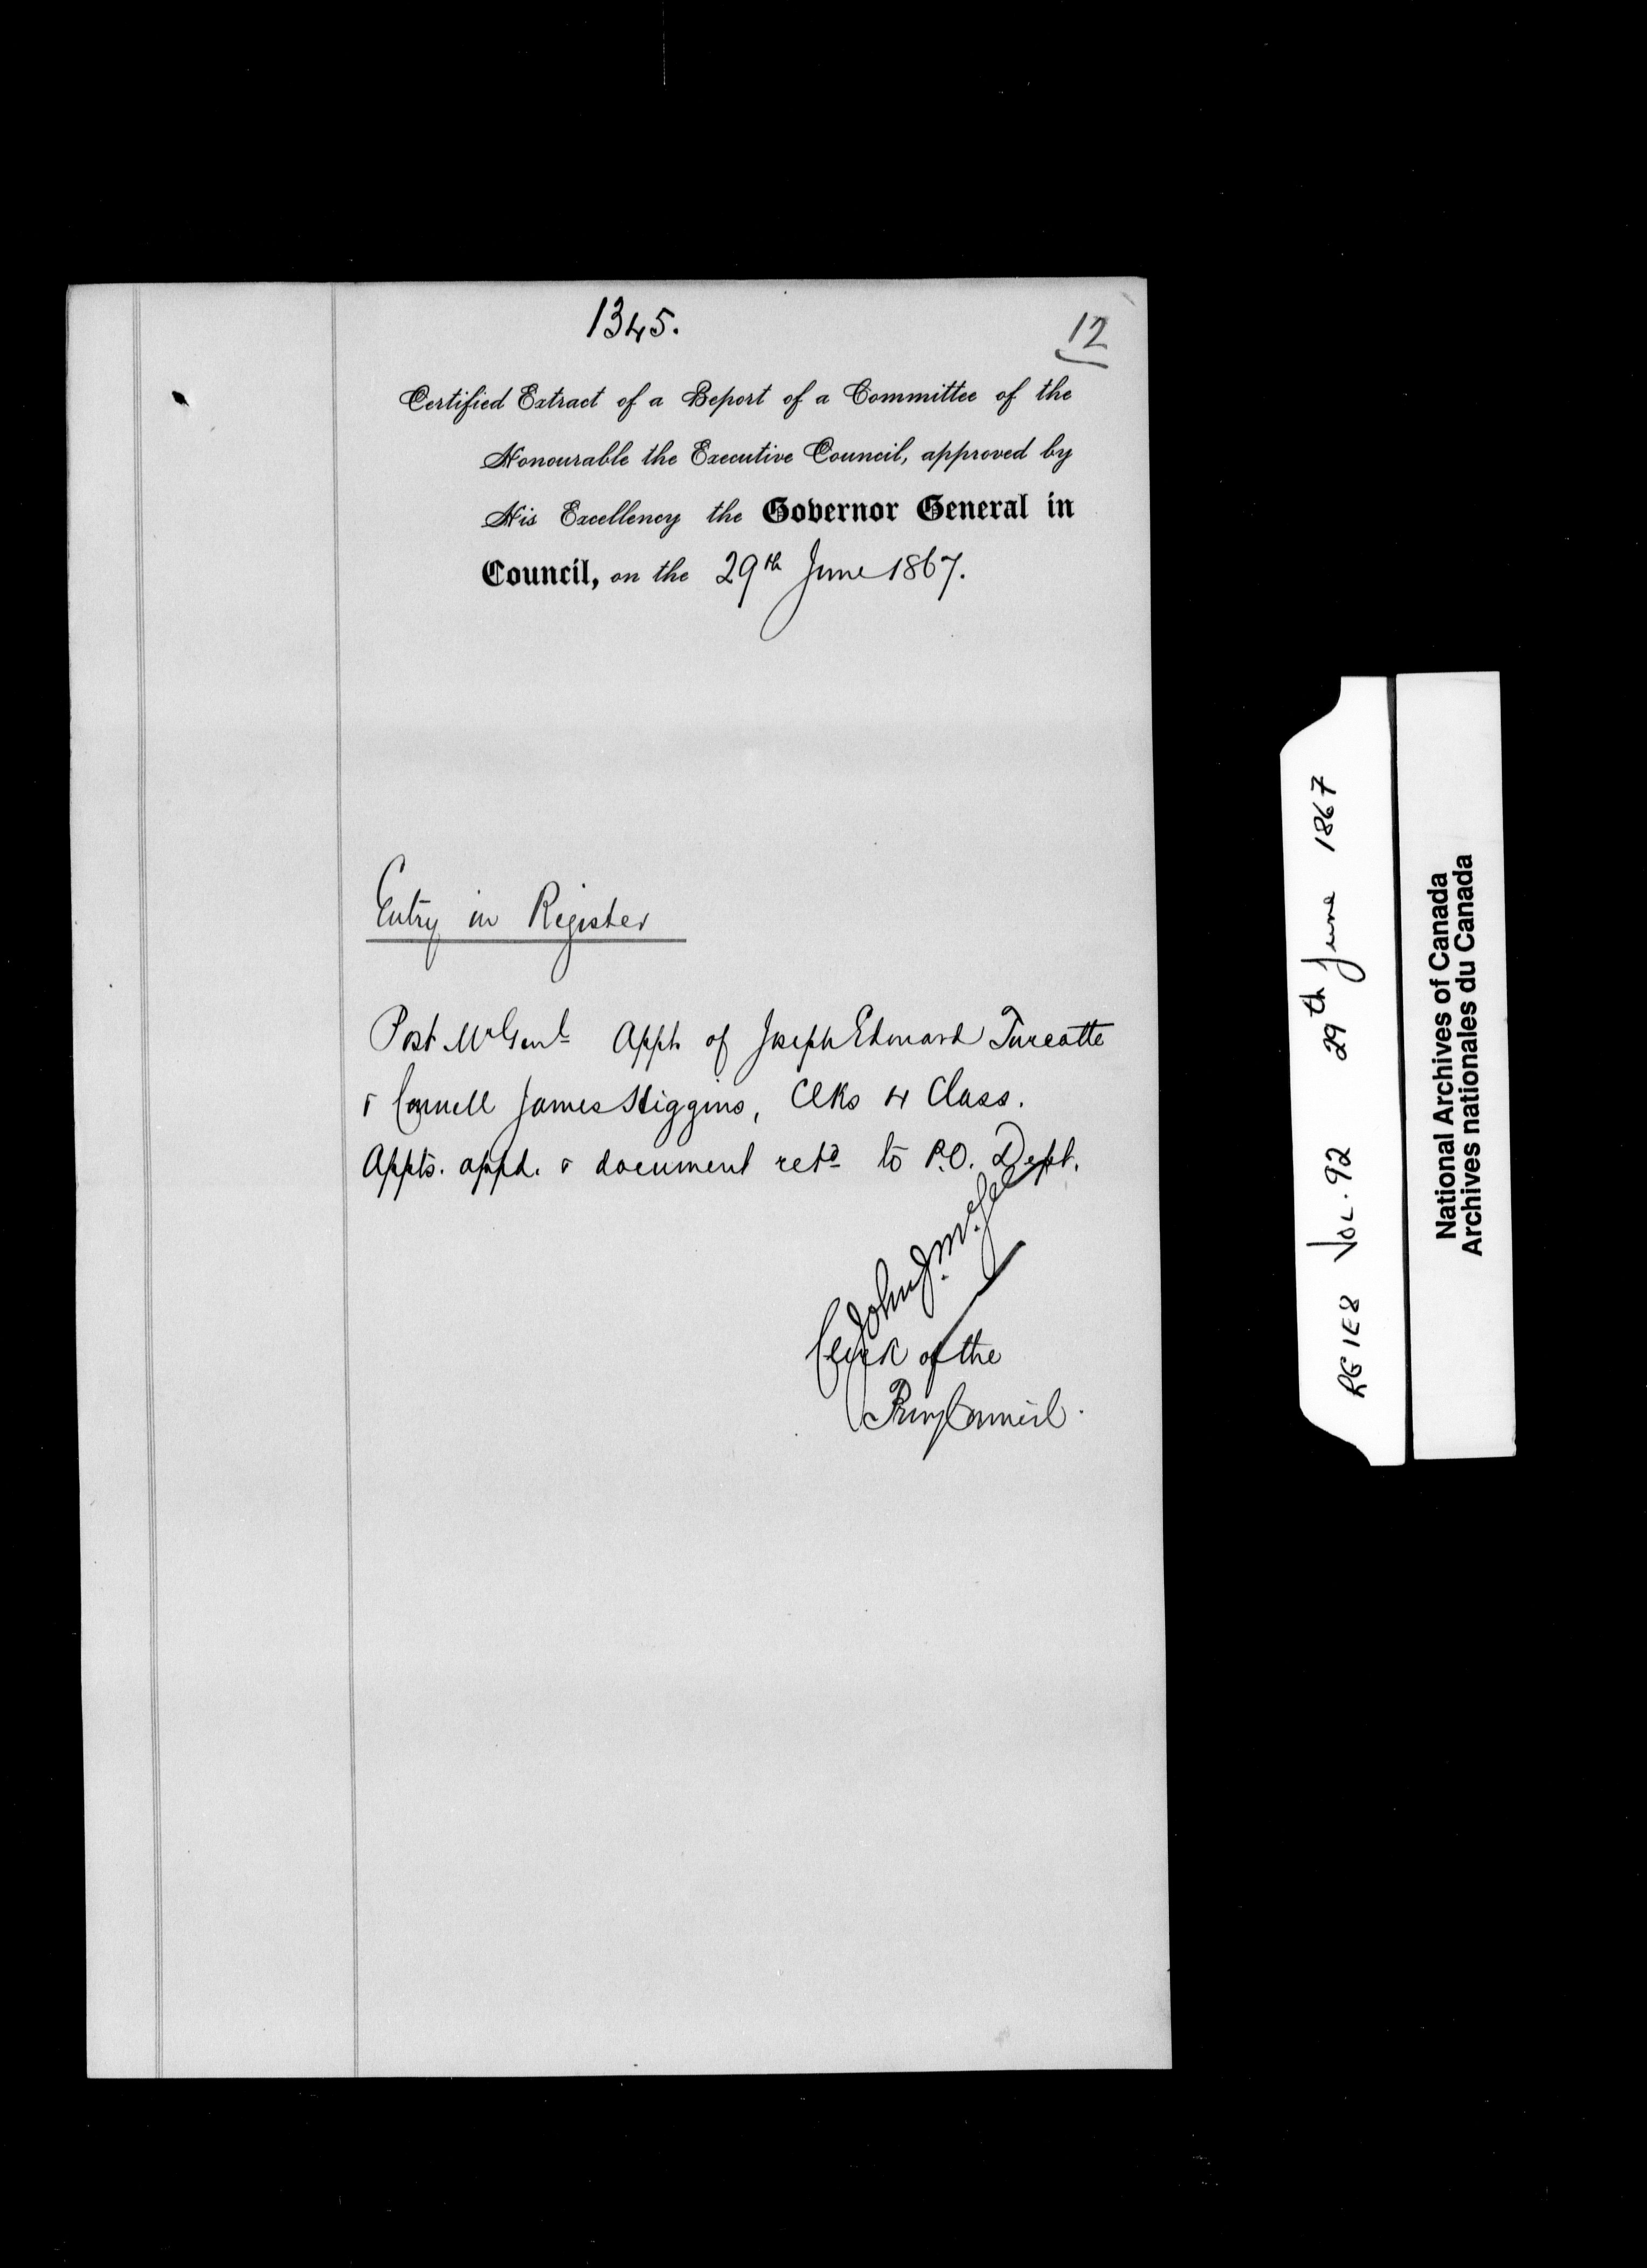 1345.
12
Certified Extract of a Report of a Committee of the
Honourable the Executive Council, approved by
His Excellency the Governor General in
Council, on the 29th June 1867.
Entry in Register
Post Mr Genl Appt. of Joseph Edward Turcotte
& James Higgins, Clks 4 Class.
Appts. appd. & document retd to P.O. Dept.
John J. McGee
Clerk of the
Privy Council.
RG 1E8 VOL. 92 29th June 1867
National Archives of Canada
Archives nationales du Canada